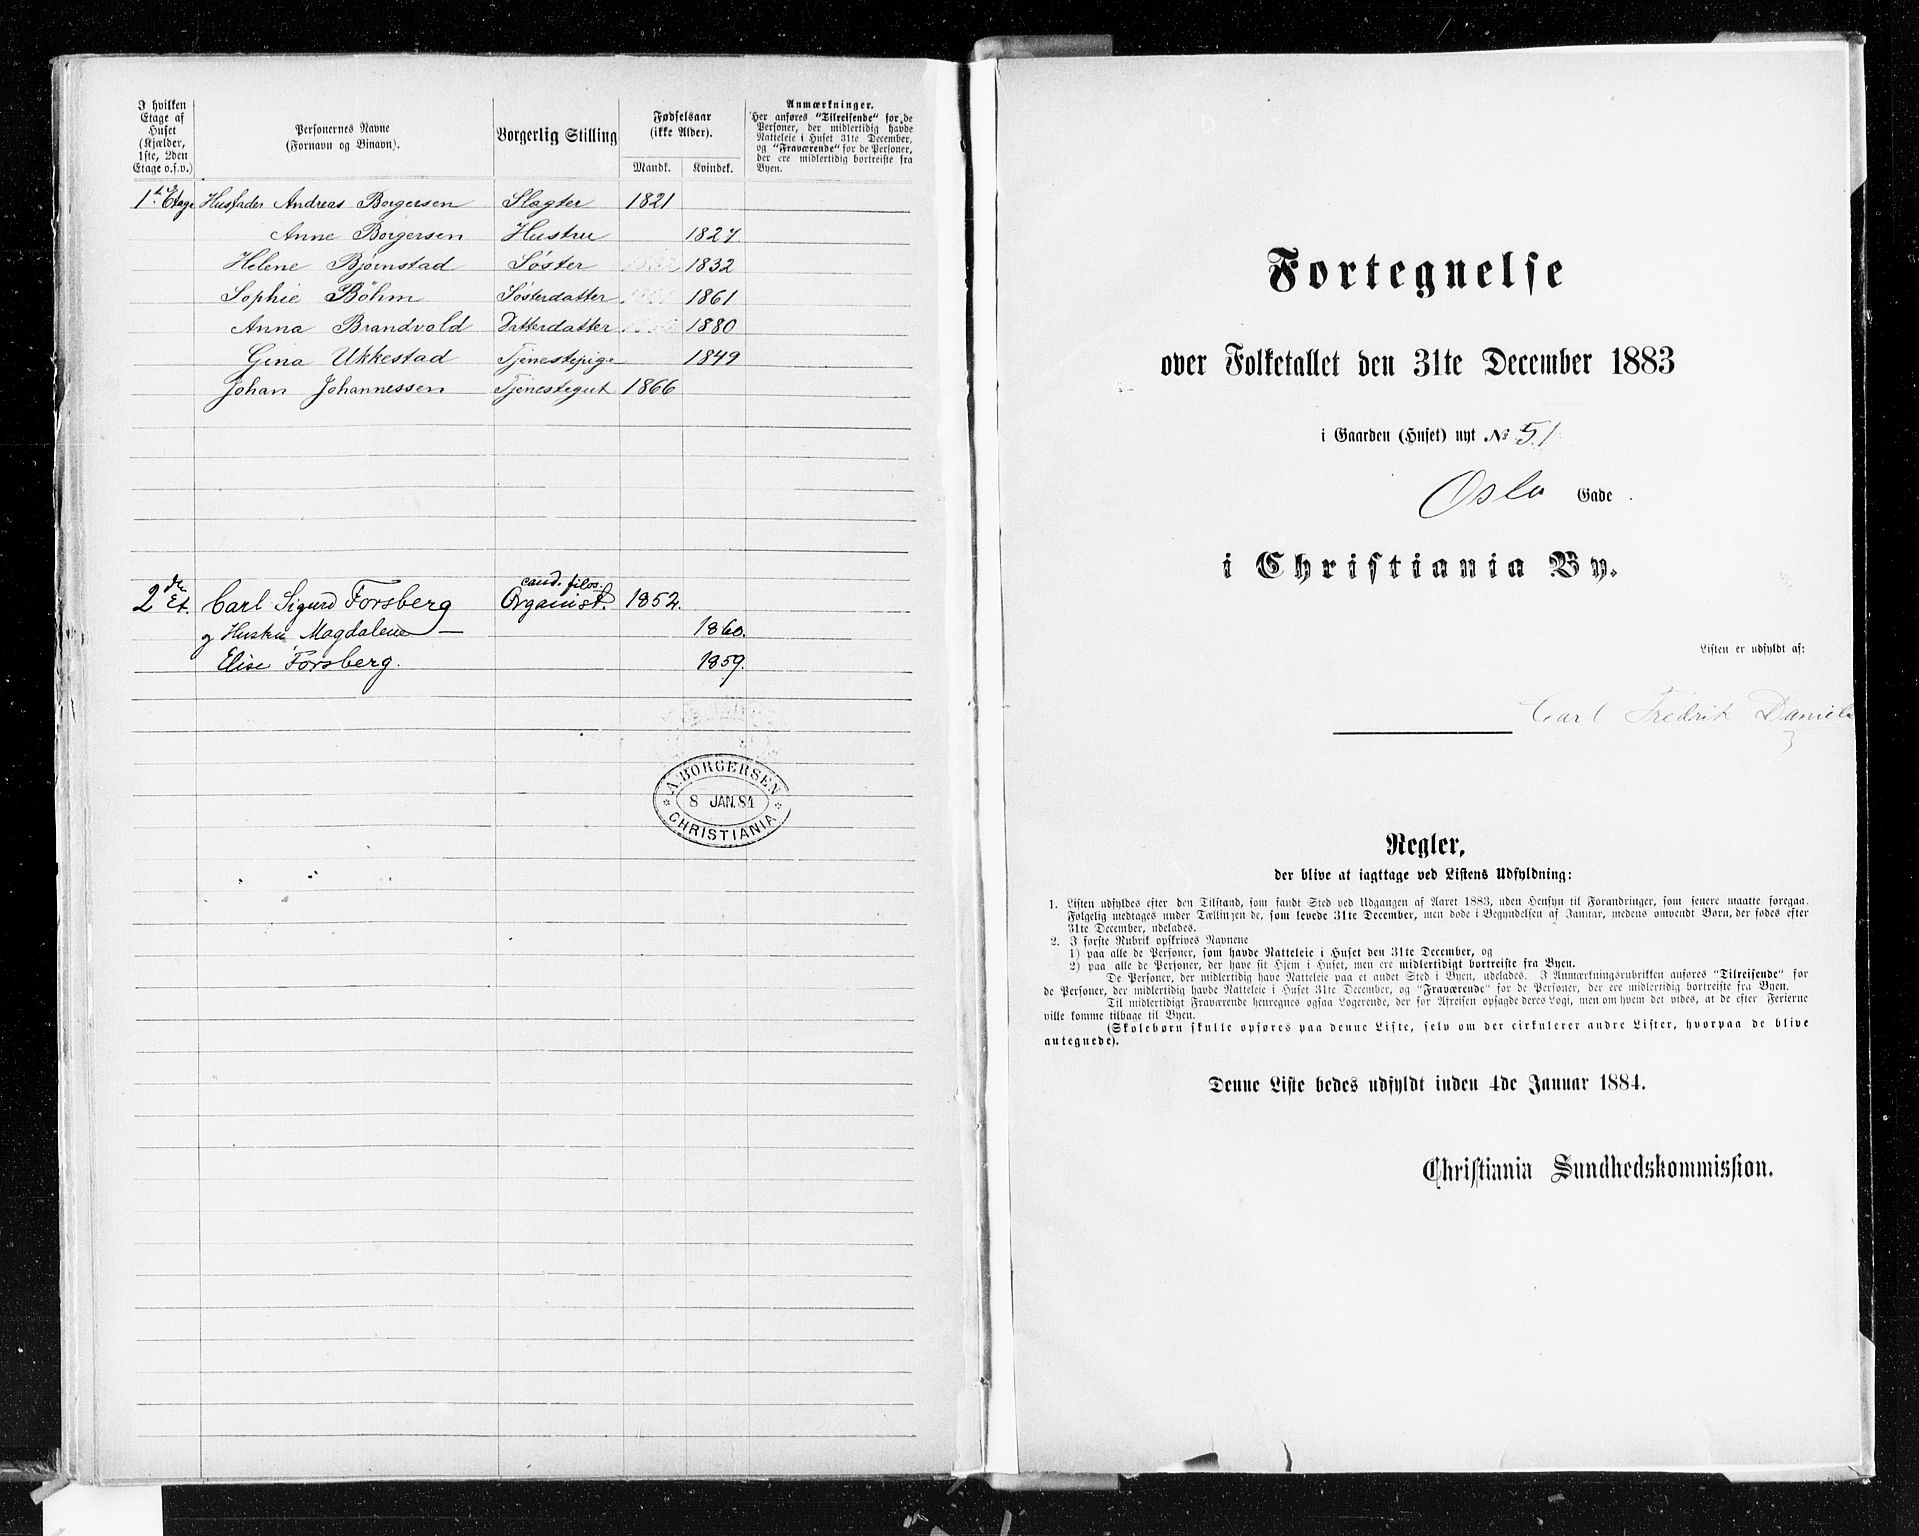 I hvilken
Etage af
Huset
(Kjælder,
1ste, 2den
Etage o.s.v.)
Personernes Navne
(Fornavn og Binavn).
Borgerlig Stilling
Fødselsaar
(ikke Alder).
Mandk. Kvindek.
Anmærkninger.
Her anføres "Tilreisende" for de
Personer, der midlertidig havde
Natteleie i Huset 31te December,
og "Fraværende" for de Personer,
der ere midlertidig bortreiste fra
Byen.
1ste Etage Husfader Andreas Borgersen Slagter 1821
Anne Borgersen Hustru 1827.
Helene Bjørnstad Søster 1832
Sophie Böhm Søsterdatter 1861
Anna Brandvold Datterdatter 1880
Gina Ukkestad Tjenestepige 1849
Johan Johannessen Tjenestegut 1866
cand. filos.
2de Et. Carl Sigurd Forsberg Organist. 1852.
og Hustru Magdalene — 1860.
Elise Forsberg. 1859.
A. BORGERSEN
8 JAN. 84
CHRISTIANIA
Fortegnelse
over Folketallet den 31te December 1883
i Gaarden (Huset) nyt № 51
Oslo Gade.
i Christiania By.
Listen er udfyldt af:
Carl Fredrik Daniels
Regler,
der blive at iagttage ved Listens Udfyldning:
1. Listen udfyldes efter den Tilstand, som fandt Sted ved Udgangen af Aaret 1883, uden Hensyn til Forandringer, som senere maatte foregaa.
Følgelig medtages under Tællingen de, som levede 31te December, men døde i Begyndelsen af Januar, medens omvendt Børn, der fødes efter
31te December, udelades.
2. I første Rubrik opskrives Navnene
1) paa alle de Personer, som havde Natteleie i Huset den 31te December, og
2) paa alle de Personer, der have sit Hjem i Huset, men ere midlertidigt bortreiste fra Byen.
De Personer, der midlertidig have Natteleie paa et andet Sted i Byen, udelades. I Anmærkningsrubrikken anføres "Tilreisende" for
de Personer, der midlertidig havde Natteleie i Huset 31te December, og "Fraværende" for de Personer, der ere midlertidig bortreiste fra Byen.
Til midlertidigt Fraværende henregnes ogsaa Logerende, der før Afreisen opsagde deres Logi, men om hvem det vides, at de efter Ferierne
ville komme tilbage til Byen.
(Skolebørn skulle opføres paa denne Liste, selv om der cirkulerer andre Lister, hvorpaa de blive
antegnede).
Denne Liste bedes udfyldt inden 4de Januar 1884.
Christiania Sundhedskommission.